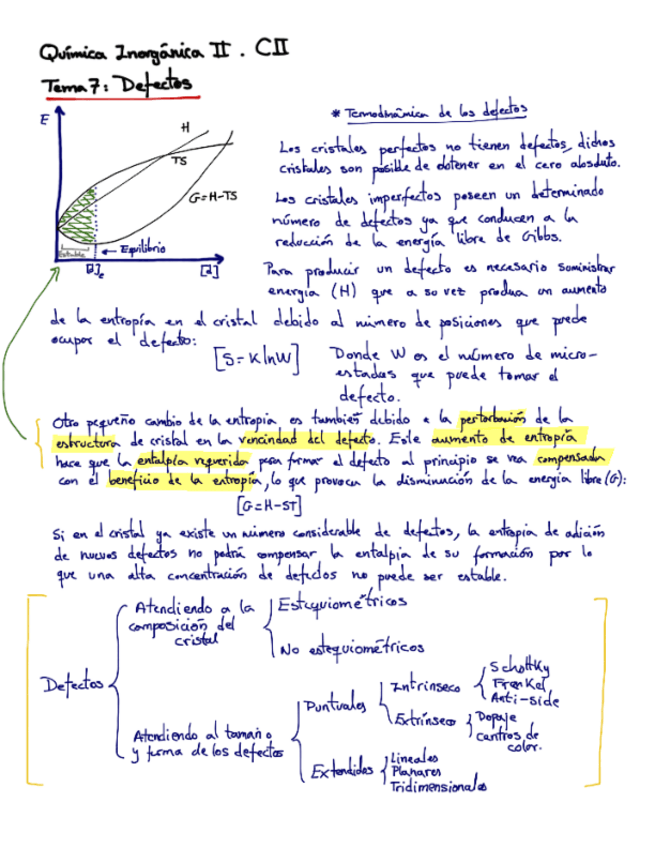 Química Inorgánica II. CII
Tema 7: Defectos
* Termodinámica de los defectos
E
H
TS
G=H-TS
Estable
← Equilibrio
[d]e
[d]
Los cristales perfectos no tienen defectos, dichos
cristales son posible de obtener en el cero absoluto.
Los cristales imperfectos poseen un determinado
número de defectos ya que conducen a la
reducción de la energía libre de Gibbs.
Para producir un defecto es necesario suministrar
energía (H) que a su vez produca un aumento
de la entropía en el cristal debido al número de posiciones que puede
ocupar el defecto:
[S=KlnW]
Donde W es el número de micro-
estados que puede tomar el
defecto.
Otro pequeño cambio de la entropia es tambien debido a la perturbación de la
estructura de cristal en la vencindad del defecto. Este aumento de entropía
hace que la entalpía requerida para formar el defecto al principio se vea compensada
con el beneficio de la entropía, lo que provoca la disminución de la energia libre (G):
[G=H-ST]
Si en el cristal ya existe un número considerable de defectos, la entropia de adición
de nuevos defectos no podrá compensar la entalpia de su formación por lo
que una alta concentración de defectos no puede ser estable.
Defectos
Atendiendo a la
composición del
cristal
Estequiométricos
No estequiométricos
Atendiendo al tamaño
y forma de los defectos
Puntuales
Intrinseco
Schottky
Frenkel
Anti-side
Extrínseco
Dopaje
centros de
color.
Extendidos
Lineales
Planares
Tridimensionales